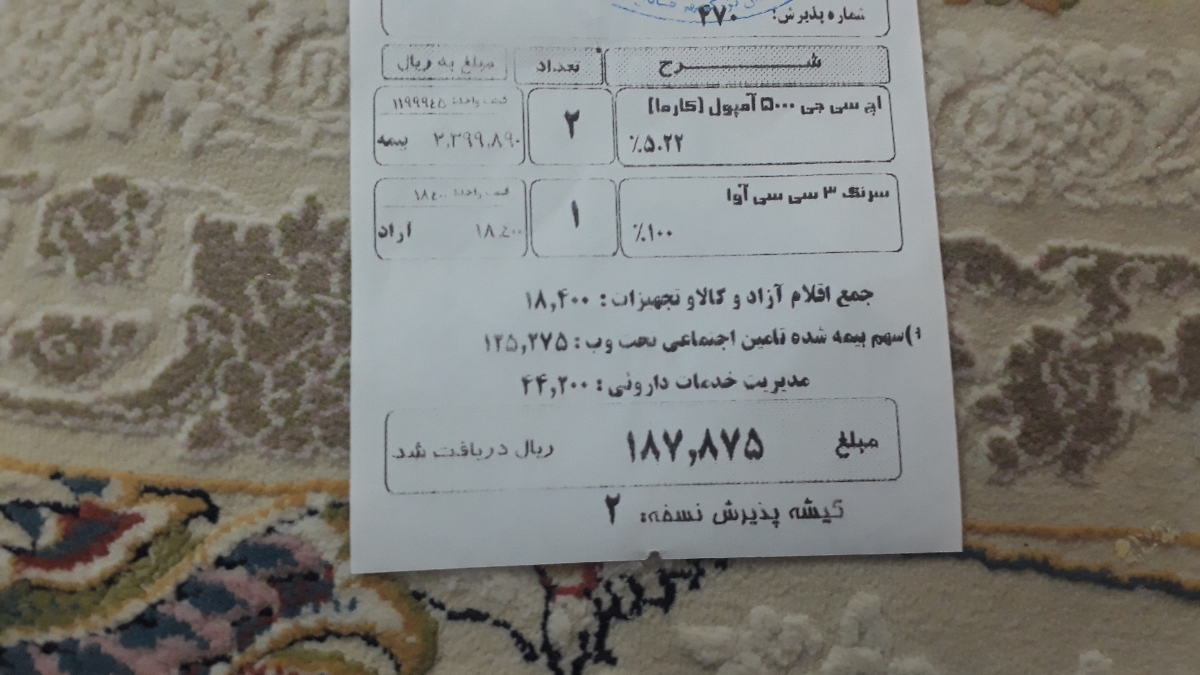 شماره پذیرش: ۴۷۰
شرح تعداد مبلغ به ریال
اچ سی جی ۵۰۰۰ آمپول (کارما) ۲ قیمت واحد: ۱۱۹۹۹٤۵
٪۵.۲۲ ۲,۳۹۹,۸۹۰ بیمه
سرنگ ۳ سی سی آوا ۱ قیمت واحد: ۱۸٤۰۰
٪۱۰۰ ۱۸,٤۰۰ آزاد
جمع اقلام آزاد و کالاو تجهیزات : ۱۸,۴۰۰
۱)سهم بیمه شده تامین اجتماعی تحت وب : ۱۲۵,۲۷۵
مدیریت خدمات داروئی : ۴۴,۲۰۰
مبلغ ۱۸۷,۸۷۵ ریال دریافت شد
گیشه پذیرش نسخه: ۲